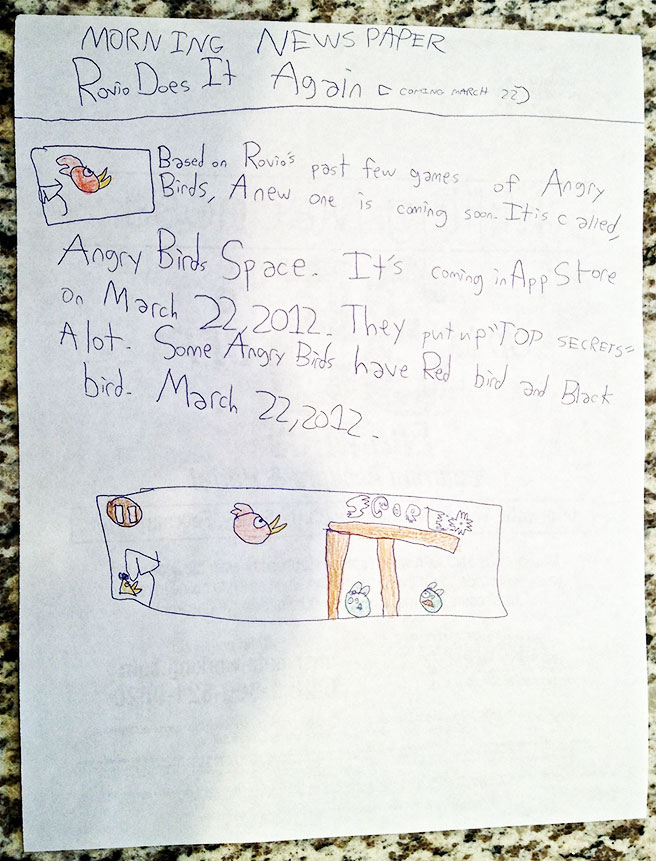 MORNING NEWSPAPER
Rovio Does It Again
COMING MARCH 22)
Based on Rovio's past few games of Angry
Birds, A new one is coming soon. It is called,
Angry Birds Space. It's coming in App Store
on March 22, 2012. They put up "TOP SECRETS"
A lot. Some Angry Birds have Red bird and Black
bird. March 22, 2012.